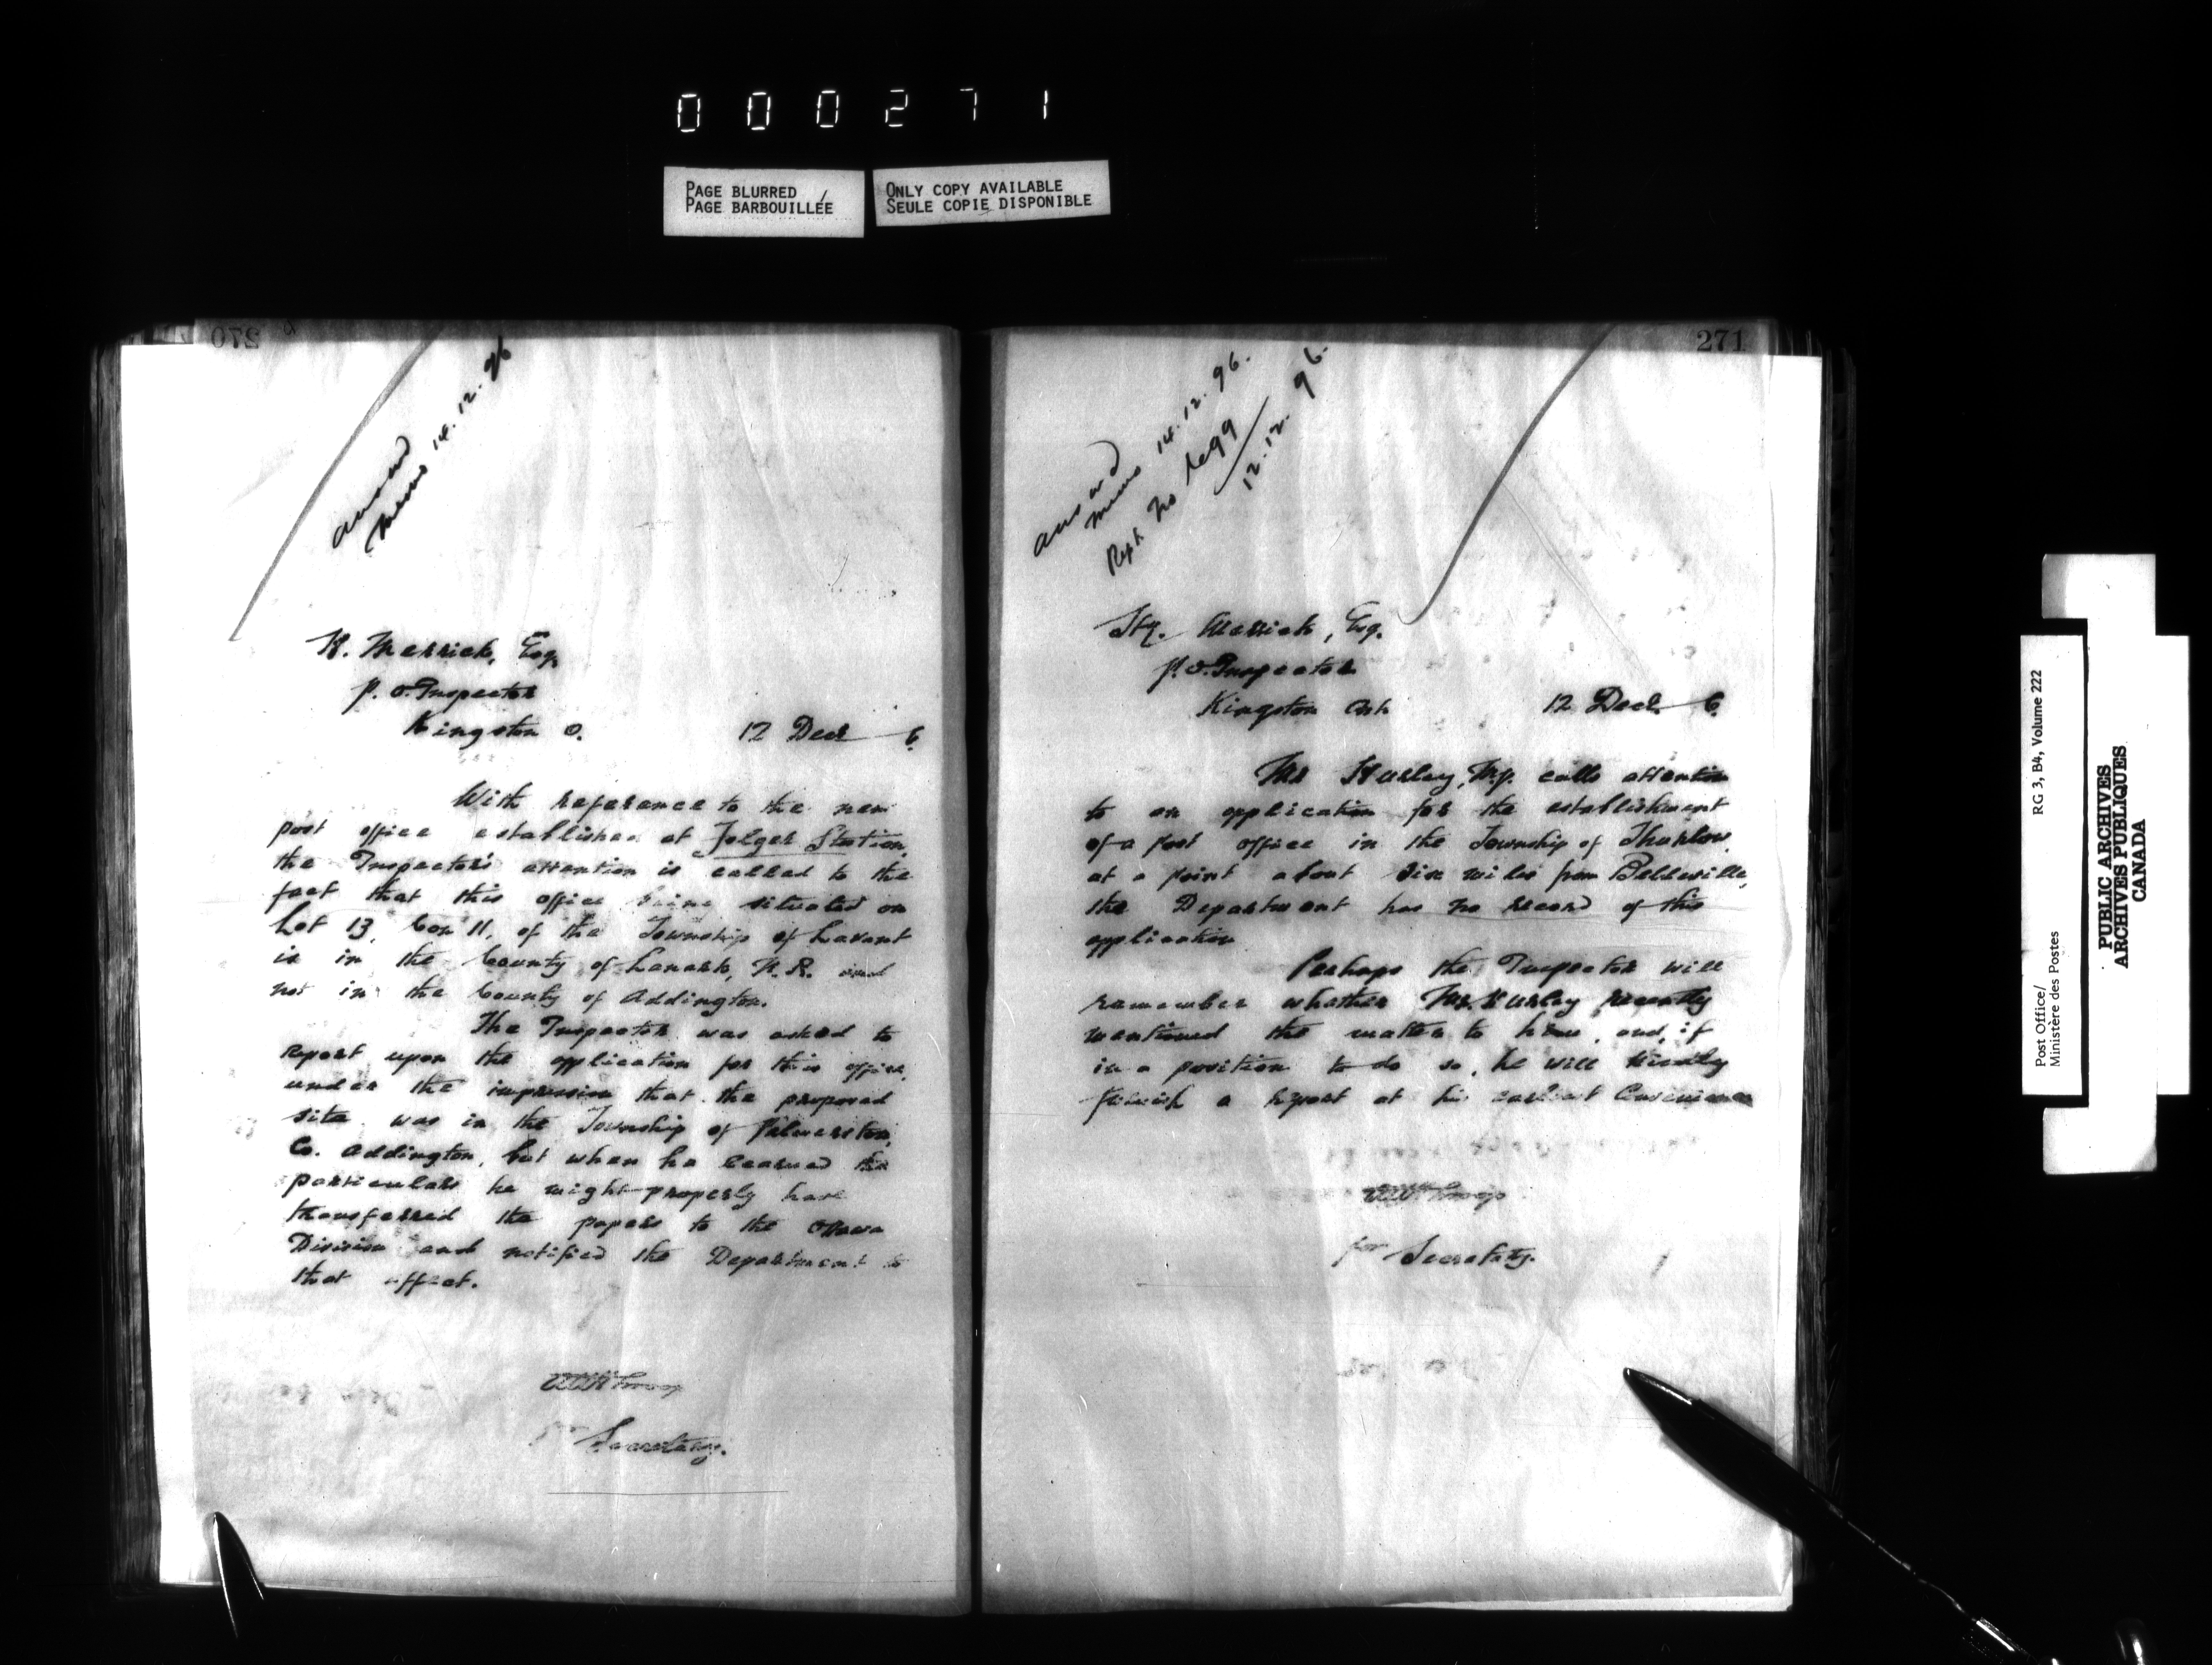 000271
PAGE BLURRED
PAGE BARBOUILLÉE
ONLY COPY AVAILABLE
SEULE COPIE DISPONIBLE
270
answd
memo 14.12.96
H. Merrick, Esq.
P. O. Inspector
Kingston O. 12 Decr 6.
With reference to the new
post office established at Folger Station,
the Inspector's attention is called to the
fact that this office being situated on
Lot 13, Con 11, of the Township of Lavant
is in the County of Lanark, N. R. and
not in the County of Addington.
The Inspector was asked to
report upon the application for this office,
under the impression that the proposed
site was in the Township of Palmerston,
Co. Addington, but when he learned the
particulars he might properly have
transferred the papers to the Ottawa
Division and notified the Department to
that effect.
for Secretary.
271
answd
memo 14.12.96.
Rept. No
12.12.96.
Merrick, Esq.
P. O. Inspector
Kingston Ont 12 Decr. 6.
Mr Hurley, M.P. calls attention
to an application for the establishment
of a post office in the Township of Thurlow,
at a point about six miles from Belleville,
the Department has no record of this
application
Perhaps the Inspector will
remember whether Mr. Hurley recently
mentioned the matter to him, and, if
in a position to do so, he will kindly
furnish a report at his earliest Convenience
for Secretary.
Post Office/ RG 3, B4, Volume 222
Ministère des Postes
PUBLIC ARCHIVES
ARCHIVES PUBLIQUES
CANADA